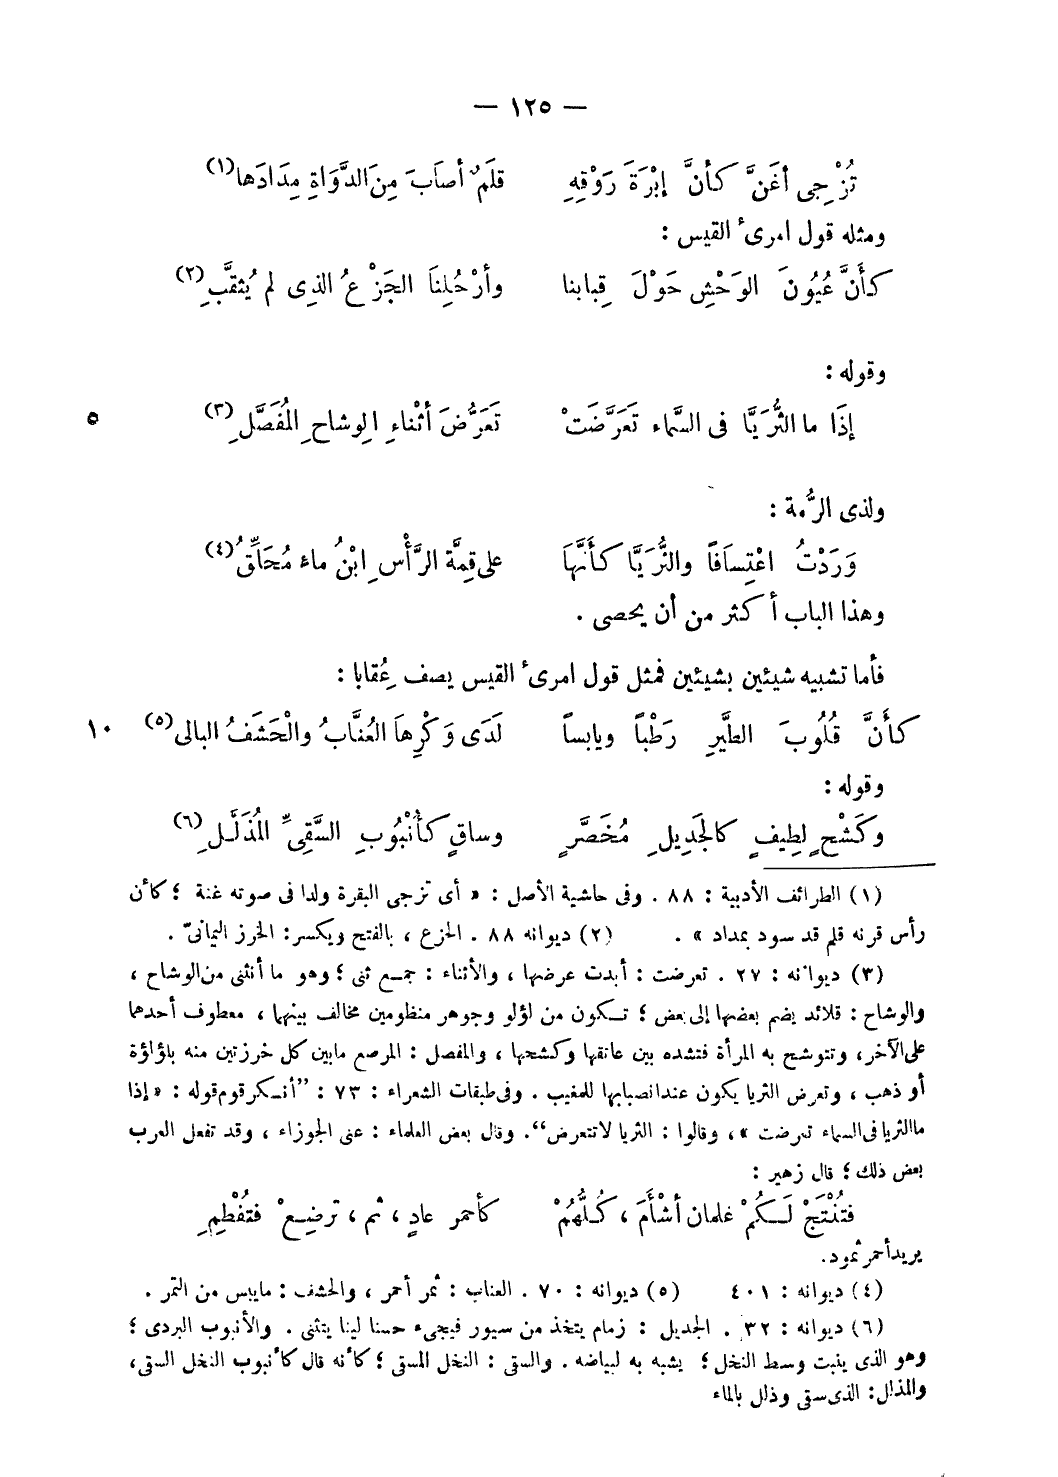 — ١٢٥ —
تُزْجِى أغَنَّ كَأنَّ إبْرَةَ رَوْقِهِ قلَمٌ أصَابَ مِنَ الدَّوَاةِ مِدَادَها(١)
ومثله قول امرئ القيس :
كَأَنَّ عُيُونَ الوَحْشِ حَوْلَ قِبابنا وأرْحُلِنَا الجَزْعُ الذِى لم يُثقَّبِ(٢)
وقوله :
إذَا ما الثُّرَيَّا فى السَّماء تَعَرَّضَتْ تَعَرُّضَ أثْناءِ الوِشاحِ المُفَصَّلِ(٣)
٥
ولذى الرُّمة :
وَرَدْتُ اعْتِسَافًا والثُّرَيَّا كَأَنَّهَا على قِمَّة الرَّأْسِ ابْنُ ماء مُحَلِّقُ(٤)
وهذا الباب أكثر من أن يحصى .
فأما تشبيه شيئين بشيئين فمثل قول امرئ القيس يصف عُِقابا :
كَأَنَّ قُلُوبَ الطَّيرِ رَطْباً ويابساً لَدَى وَكْرِهَا العُنَّابُ والْحَشَفُ البالى(٥)
١٠
وقوله :
وكَشْحٍ لطِيفٍ كالجَدِيلِ مُخَصَّرٍ وساقٍ كَأُنْبُوبِ السَّقِىِّ المُذَلَّلِ(٦)
(١) الطرائف الأدبية : ٨٨ . وفى حاشية الأصل : « أى تزجى البقرة ولدا فى صوته غنة ؛ كأن
رأس قرنه قلم قد سود بمداد » . (٢) ديوانه ٨٨ . الجزع ، بالفتح ويكسر: الخرز اليمانىّ .
(٣) ديوانه : ٢٧ . تعرضت : أبدت عرضها ، والأثناء : جمع ثنى ؛ وهو ما أنثنى من الوشاح ،
والوشاح : قلائد يضم بعضها إلى بعض ؛ تكون من لؤلو وجوهر منظومين مخالف بينهما ، معطوف أحدهما
على الآخر، وتتوشح به المرأة فتشده بين عاتقها وكشحها ، والمفصل : المرصع مابين كل خرزتين منه بلؤلؤة
أو ذهب ، وتعرض الثريا يكون عند انصبابها للمغيب . وفى طبقات الشعراء : ٧٣ : ”أنكر قوم قوله : « إذا
ما الثريا فى السماء تعرضت »، وقالوا : الثريا لا تتعرض“. وقال بعض العلماء : عنى الجوزاء ، وقد تفعل العرب
بعض ذلك ؛ قال زهير :
فتُنْتَجْ لَكُمْ غلمان أشْأَمَ ، كُلُّهُمْ كأحمر عادٍ ، ثم ، ترضِعْ فتُفْطِمِ
يريد أحمر ثمود.
(٤) ديوانه : ٤٠١ (٥) ديوانه : ٧٠ . العناب : ثمر أحمر ، والحشف : مايبس من التمر .
(٦) ديوانه : ٣٢ . الجديل : زمام يتخذ من سيور فيجىء حسنا لينا يتثنى . والأنبوب البردى ؛
وهو الذى ينبت وسط النخل ؛ يشبه به لبياضه . والسقى : النخل المسقى ؛ كأنه قال كأنبوب النخل السقى،
والمذلل: الذى سقى وذلل بالماء